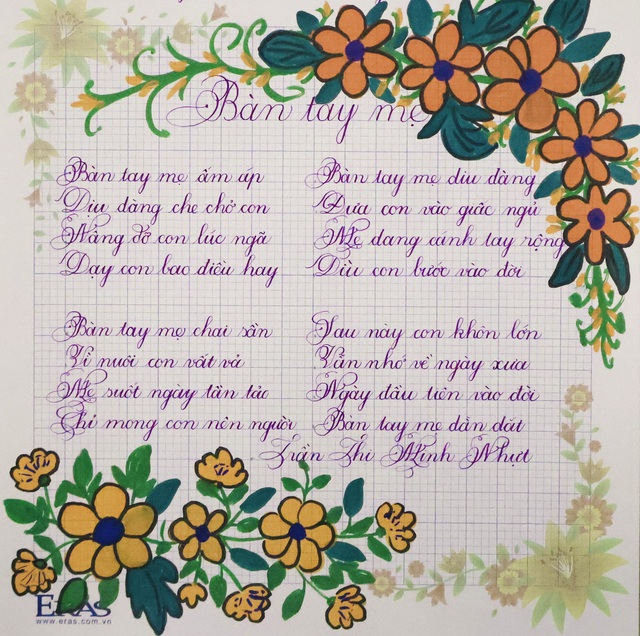 Bàn tay mẹ
Bàn tay mẹ ấm áp
Dịu dàng che chở con
Nâng đỡ con lúc ngã
Dạy con bao điều hay
Bàn tay mẹ dịu dàng
Đưa con vào giấc ngủ
Mẹ dang cánh tay rộng
Dìu con bước vào đời
Bàn tay mẹ chai sần
Vì nuôi con vất vả
Mẹ suốt ngày tần tảo
Chỉ mong con nên người
Sau này con khôn lớn
Vẫn nhớ về ngày xưa
Ngày đầu tiên vào đời
Bàn tay mẹ dẫn dắt
Trần Thi Minh Nhựt
ERAS
www.eras.com.vn
ERAS